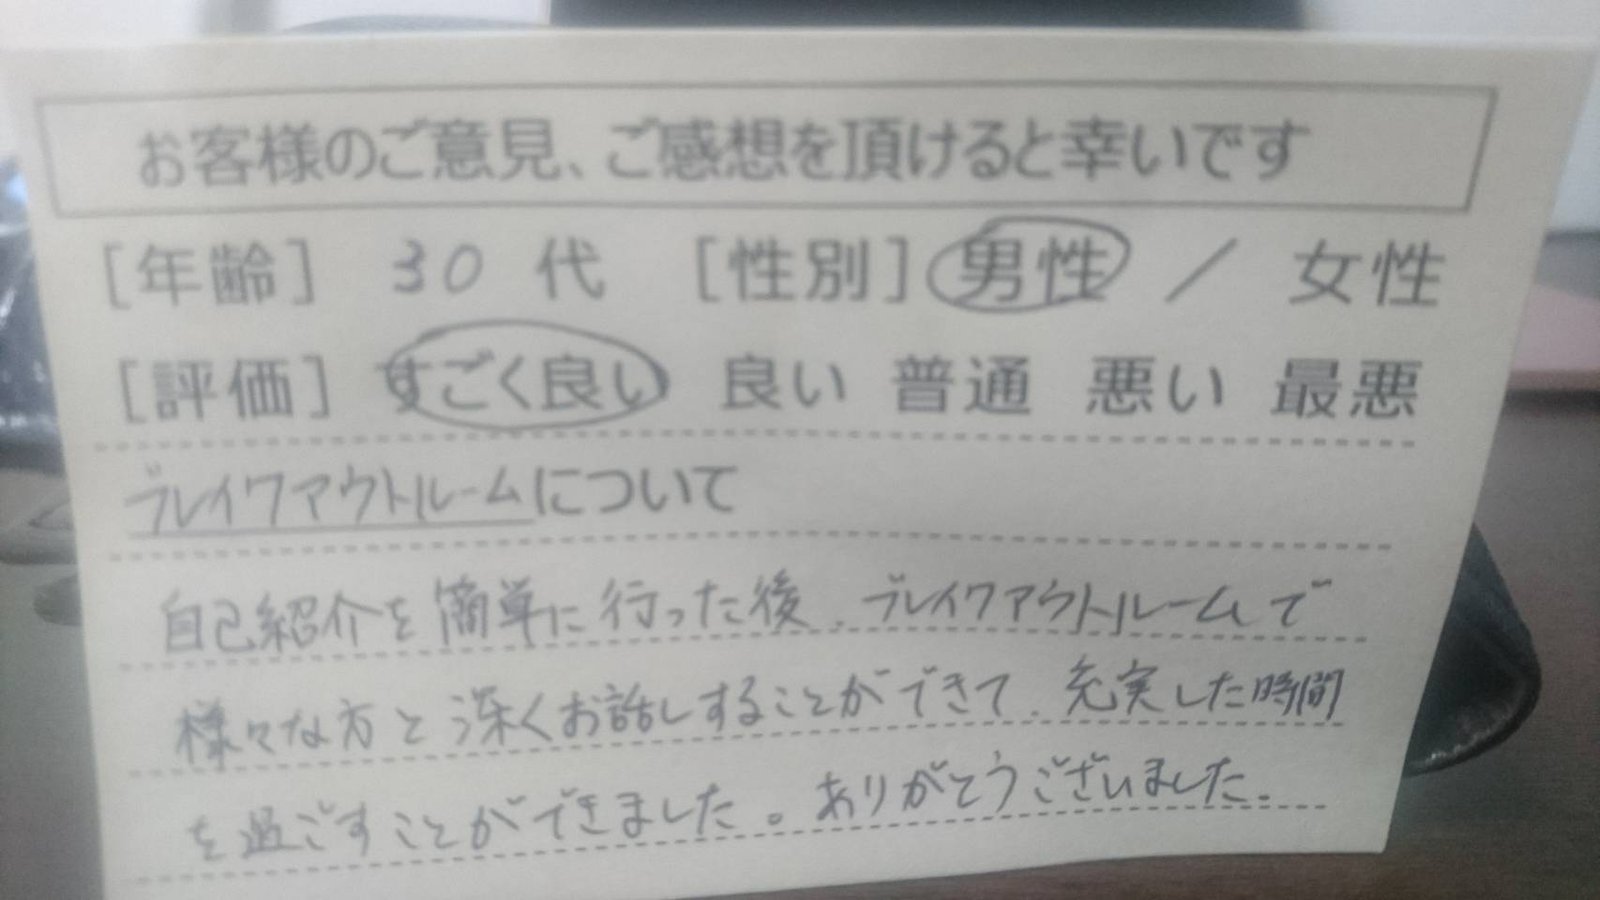 お客様のご意見、ご感想を頂けると幸いです
[年齢] 30 代 [性別] 男性 / 女性
[評価] すごく良い 良い 普通 悪い 最悪
ブレイクアウトルームについて
自己紹介を簡単に行った後、ブレイクアウトルームで
様々な方と深くお話しすることができて、充実した時間
を過ごすことができました。ありがとうございました。